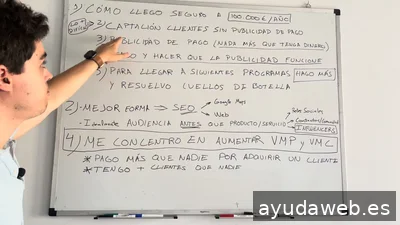 1) CÓMO LLEGO SEGURO A 100.000€/AÑO
2) CAPTACIÓN CLIENTES SIN PUBLICIDAD DE PAGO
3) PUBLICIDAD DE PAGO (NADA MÁS QUE TENGA DINERO)
Y HACER QUE LA PUBLICIDAD FUNCIONE
5) PARA LLEGAR A SIGUIENTES PROGRAMAS HAGO MÁS
Y RESUELVO CUELLOS DE BOTELLA
2) - MEJOR FORMA ⇒ SEO → Google Maps
→ Web
AUDIENCIA ANTES QUE PRODUCTO/SERVICIO → Redes Sociales
→ INFLUENCERS
4) ME CONCENTRO EN AUMENTAR VMP y VMC
* PAGO MÁS QUE NADIE POR ADQUIRIR UN CLIENTE
* TENGO + CLIENTES QUE NADIE
ayudaweb.es